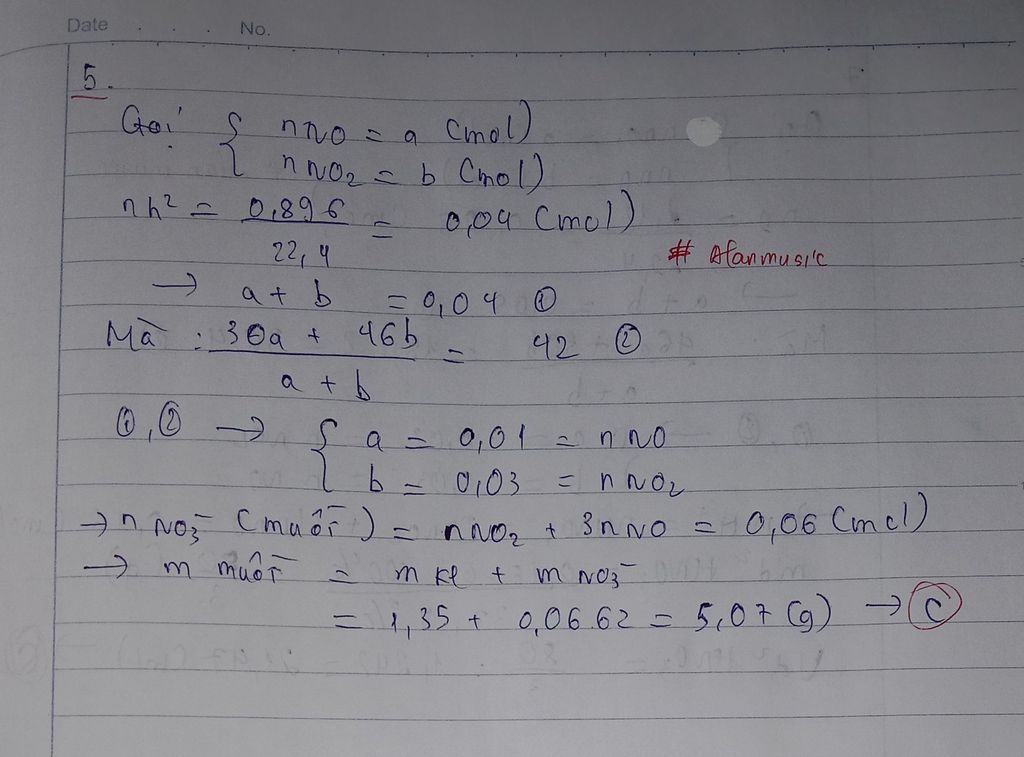 Date . . . . No.
5.
Gọi { nNO = a (mol)
nNO₂ = b (mol)
nh² = 0,896 / 22,4 = 0,04 (mol)
# Afanmusic
→ a + b = 0,04 ①
Mà : 30a + 46b / a + b = 42 ②
①,② → { a = 0,01 = nNO
b = 0,03 = nNO₂
→ nNO₃⁻ (muối) = nNO₂ + 3nNO = 0,06 (mol)
→ m muối = m kl + m NO₃⁻
= 1,35 + 0,06.62 = 5,07 (g) → C